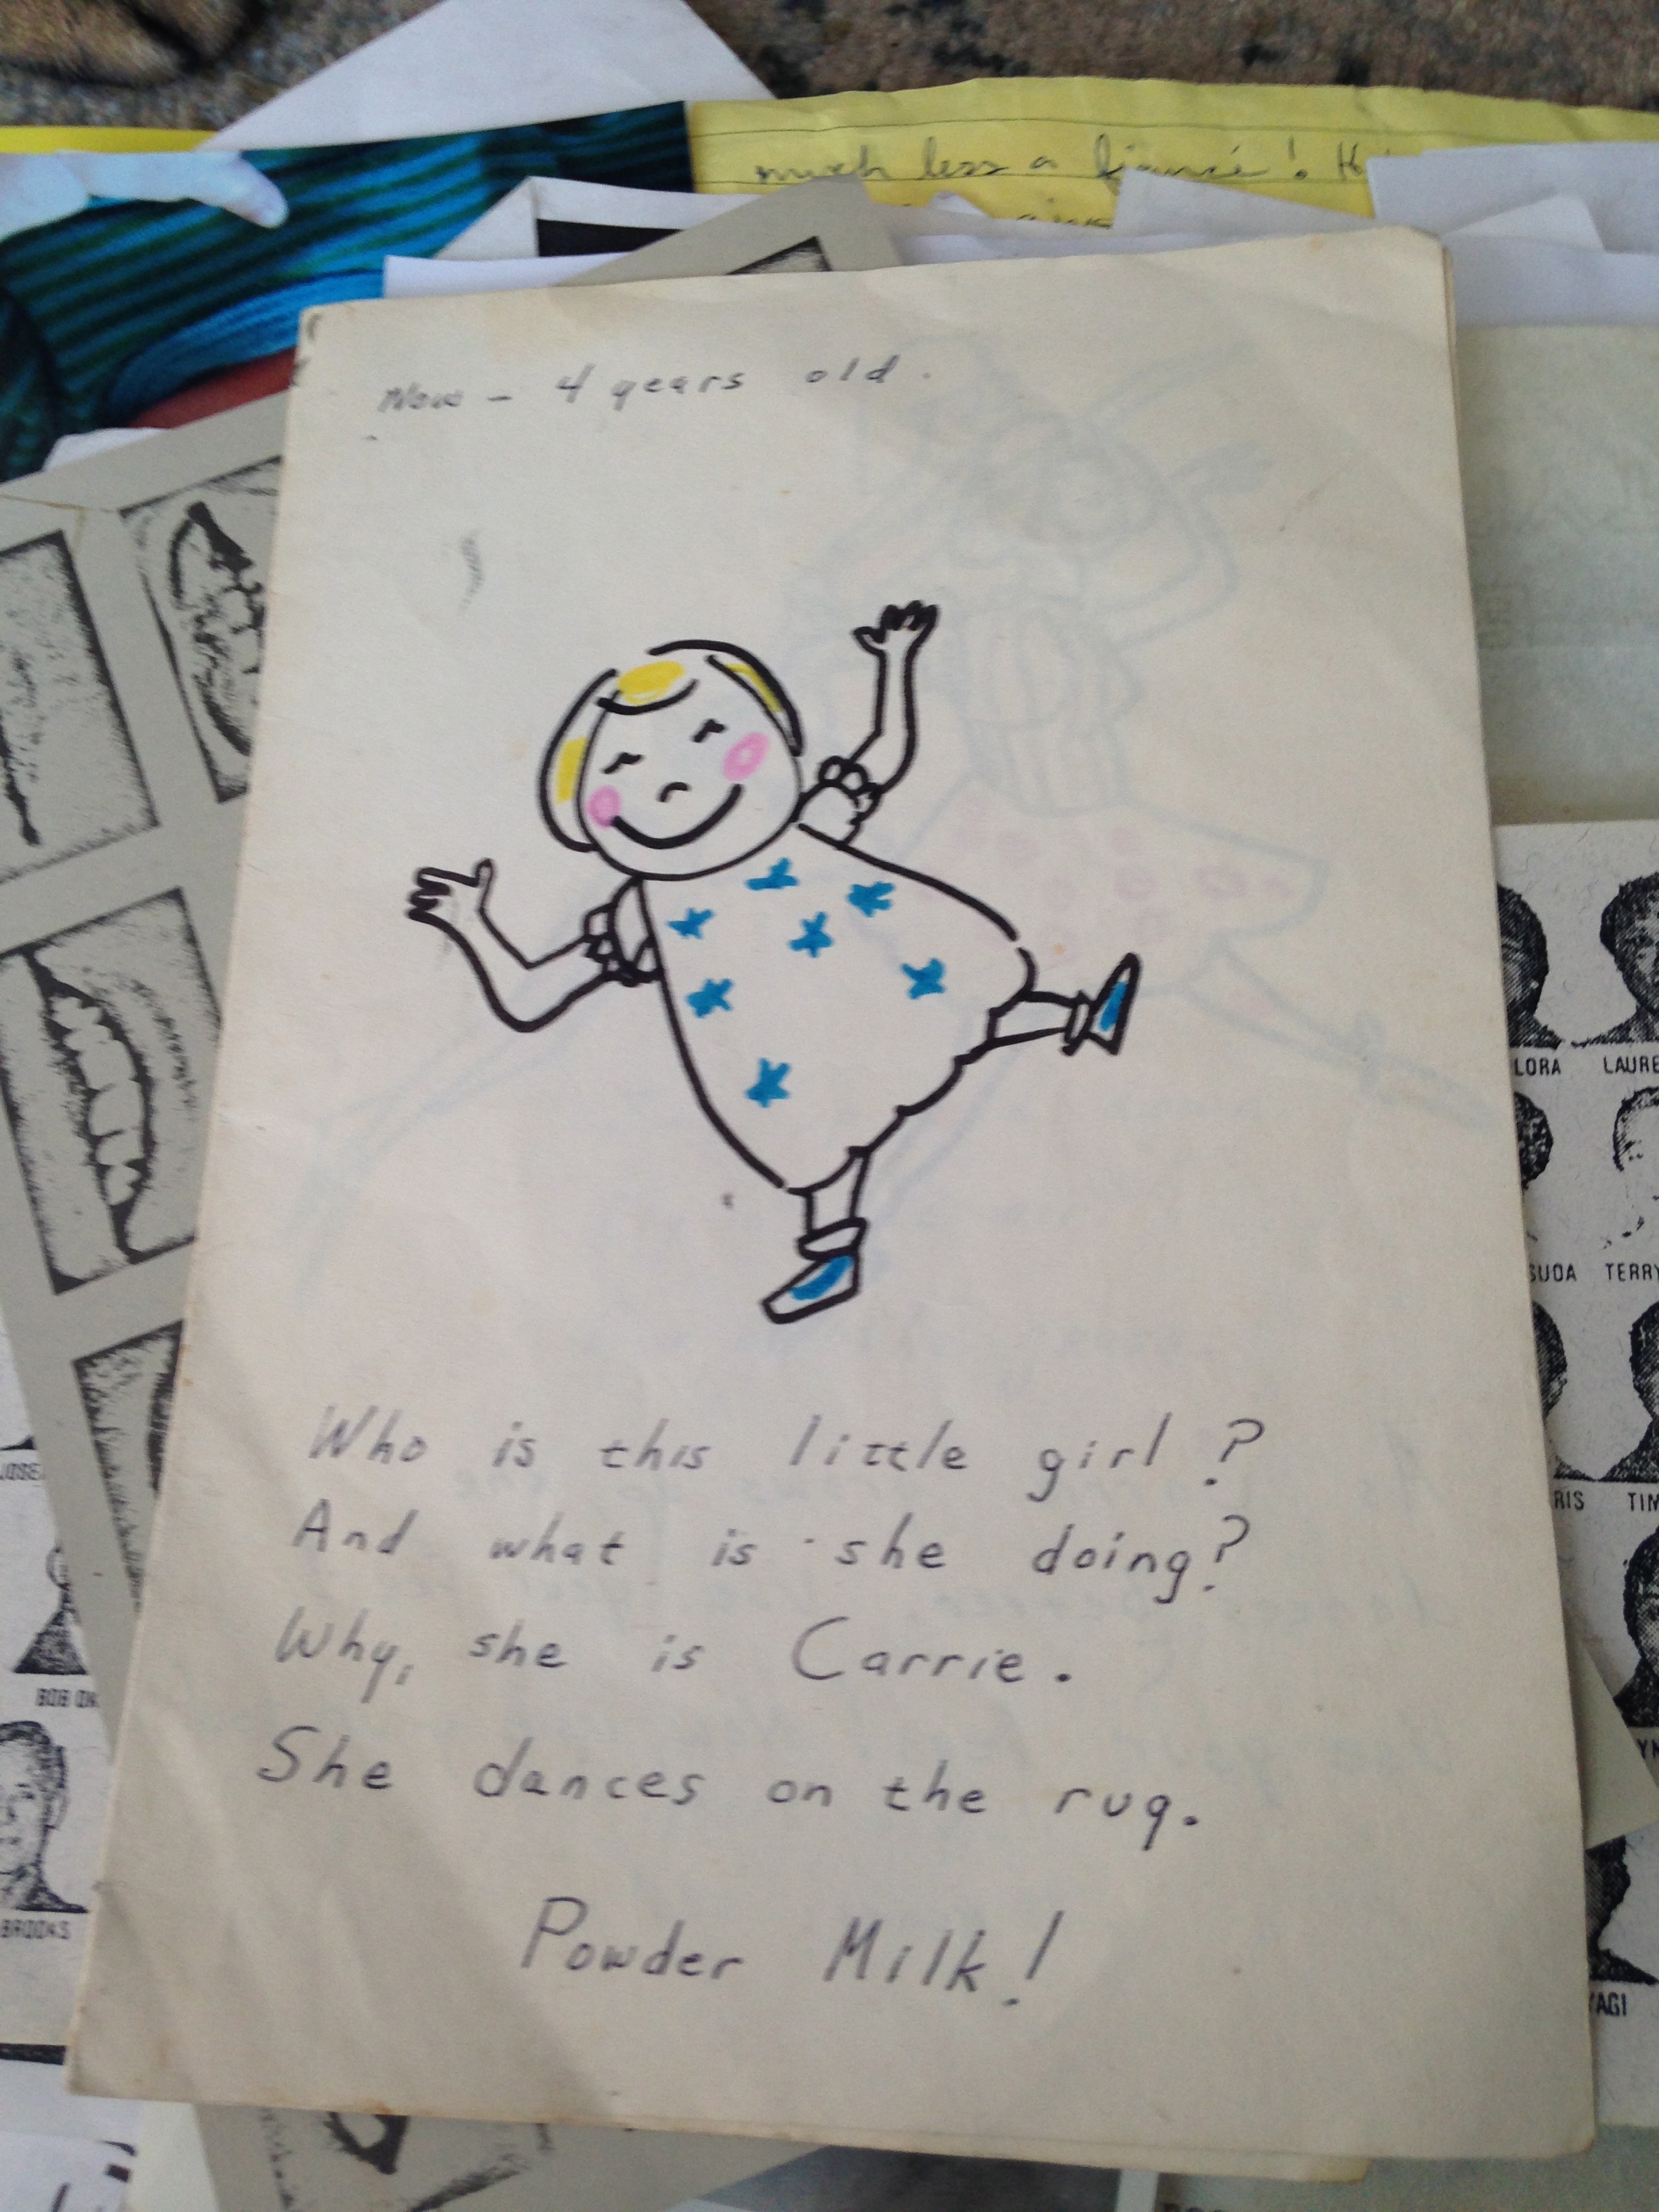 much less a fiancé!
Now - 4 years old.
LORA
LAURE
SUDA
TERRY
RIS
TIM
JOSE
BOB OK
BROOKS
YAGI
Who is this little girl?
And what is she doing?
Why, she is Carrie.
She dances on the rug.
Powder Milk!